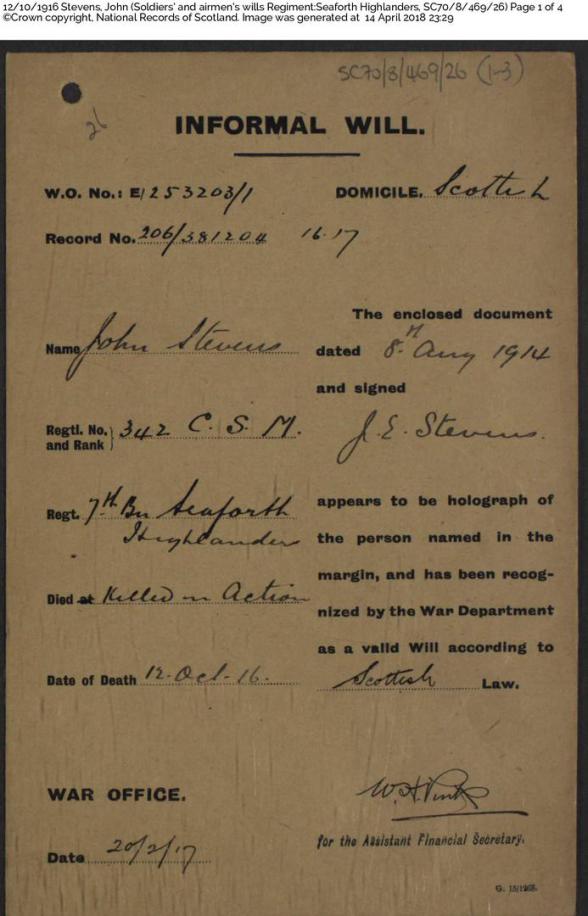 12/10/1916 Stevens, John (Soldiers' and airmen's wills Regiment:Seaforth Highlanders, SC70/8/469/26) Page 1 of 4
©Crown copyright, National Records of Scotland. Image was generated at 14 April 2018 23:29
SC70/8/469/26 (1-3)
26
INFORMAL WILL.
W.O. No.: E/253203/1
DOMICILE. Scottish
Record No. 206/381204 16.17
Name John Stevens
Regtl. No. and Rank } 342 C. S. M.
Regt. 7th Bn Seaforth
Highlanders
Died at Killed in Action
Date of Death 12. Oct. 16.
The enclosed document
dated 8th Aug 1914
and signed
J. E. Stevens.
appears to be holograph of
the person named in the
margin, and has been recog-
nized by the War Department
as a valid Will according to
Scottish Law.
WAR OFFICE.
Date 20/2/17
W. A.
for the Assistant Financial Secretary.